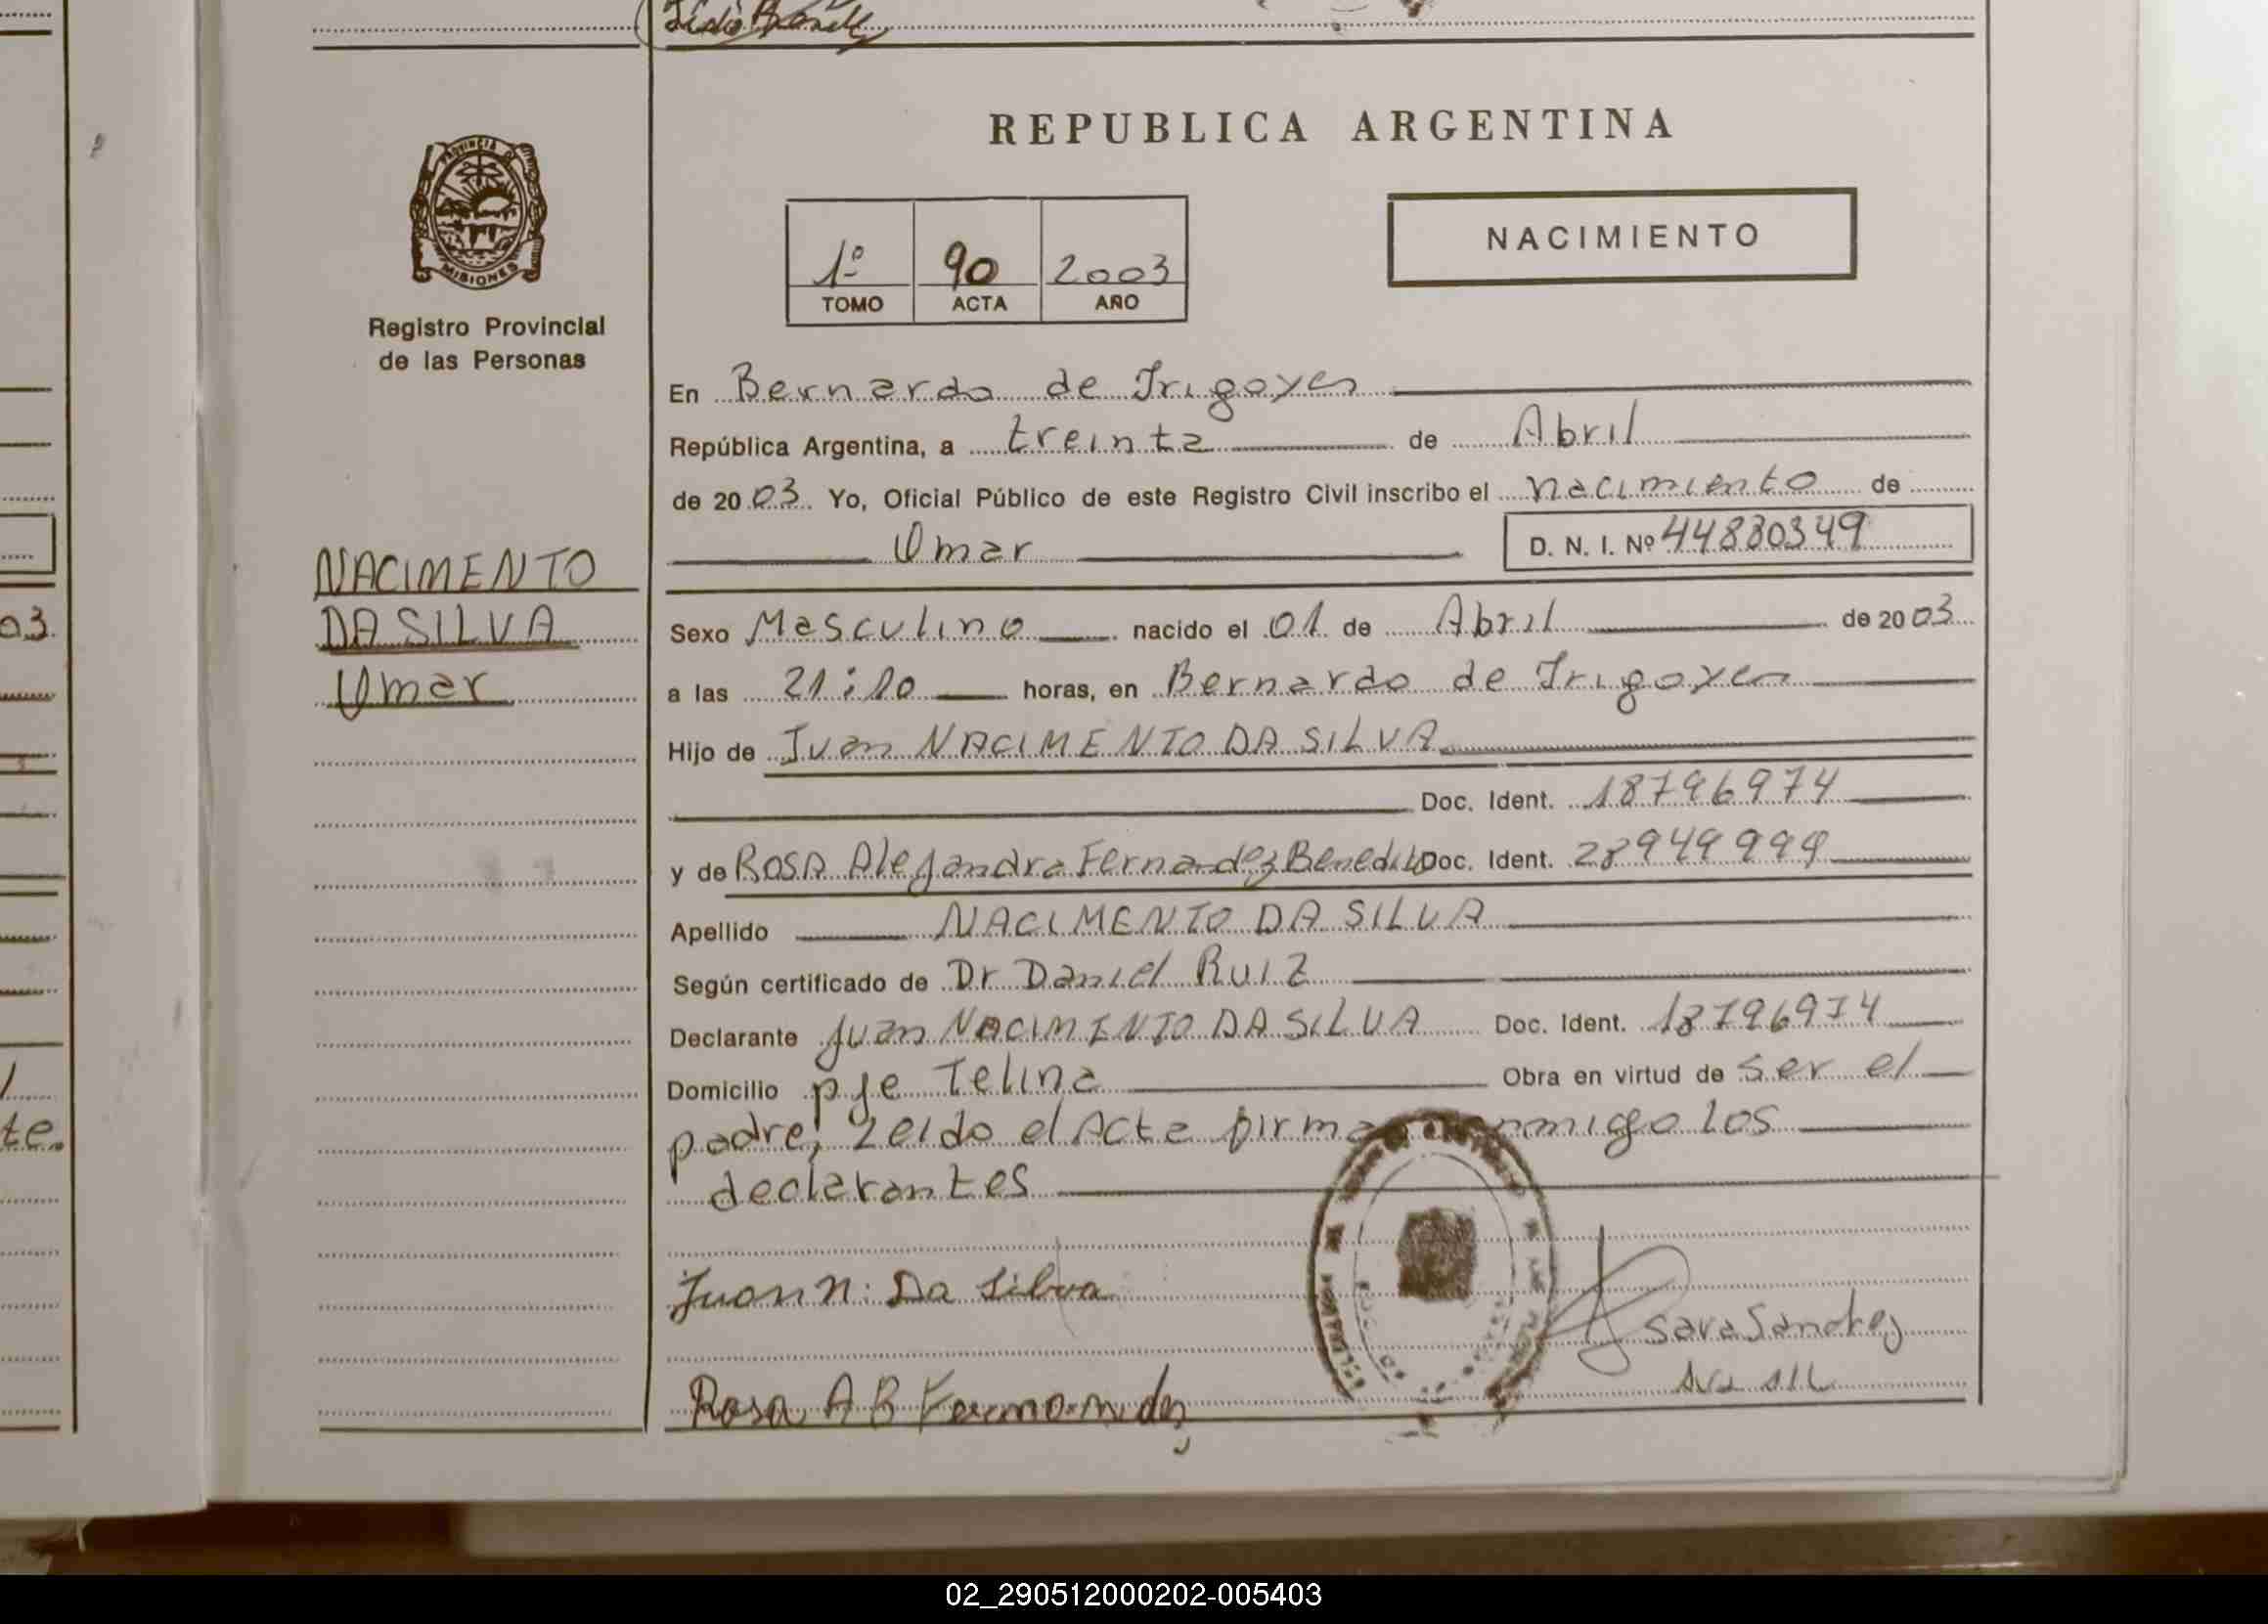 REPUBLICA ARGENTINA
PROVINCIA DE
MISIONES
Registro Provincial
de las Personas
1º 90 2003
TOMO ACTA AÑO
NACIMIENTO
En Bernardo de Irigoyen
República Argentina, a treinta de Abril
de 2003. Yo, Oficial Público de este Registro Civil inscribo el nacimiento de
Omar D. N. I. Nº 44830349
NACIMENTO
DA SILVA
Omar
Sexo Masculino nacido el 01 de Abril de 2003
a las 21:10 horas, en Bernardo de Irigoyen
Hijo de Juan NACIMENTO DA SILVA
Doc. Ident. 18796974
y de ROSA Alejandra Fernandez Benedito Doc. Ident. 28949999
Apellido NACIMENTO DA SILVA
Según certificado de Dr Daniel Ruiz
Declarante Juan NACIMENTO DA SILVA Doc. Ident. 18796974
Domicilio pje Telina Obra en virtud de ser el
padre, Leido el Acta firman conmigo Los
declarantes
Juan N. Da Silva
Sara Sanchez
Rosa A B Fernandez
03.
te.
02_290512000202-005403